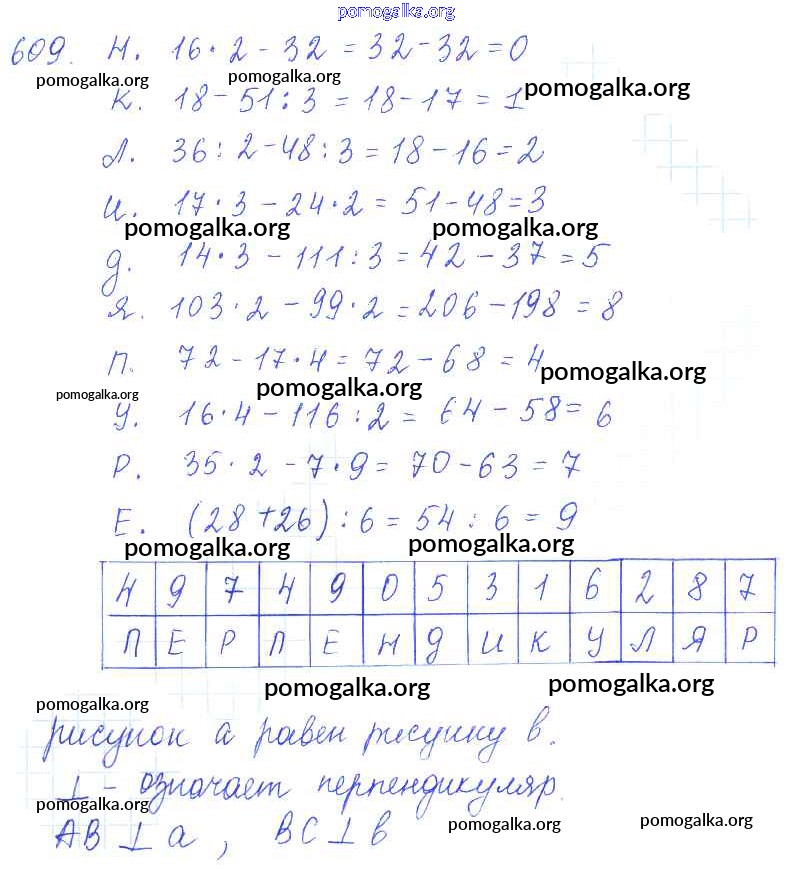 pomogalka.org
609. Н. 16 · 2 - 32 = 32 - 32 = 0
pomogalka.org pomogalka.org pomogalka.org
К. 18 - 51 : 3 = 18 - 17 = 1
Л. 36 : 2 - 48 : 3 = 18 - 16 = 2
И. 17 · 3 - 24 · 2 = 51 - 48 = 3
pomogalka.org pomogalka.org
Д. 14 · 3 - 111 : 3 = 42 - 37 = 5
Я. 103 · 2 - 99 · 2 = 206 - 198 = 8
П. 72 - 17 · 4 = 72 - 68 = 4
pomogalka.org pomogalka.org pomogalka.org
У. 16 · 4 - 116 : 2 = 64 - 58 = 6
Р. 35 · 2 - 7 · 9 = 70 - 63 = 7
Е. (28 + 26) : 6 = 54 : 6 = 9
pomogalka.org pomogalka.org
4 9 7 4 9 0 5 3 1 6 2 8 7
П Е Р П Е Н Д И К У Л Я Р
pomogalka.org pomogalka.org
pomogalka.org
рисунок а равен рисунку в.
⊥ - означает перпендикуляр.
pomogalka.org
АВ ⊥ а , ВС ⊥ в
pomogalka.org pomogalka.org